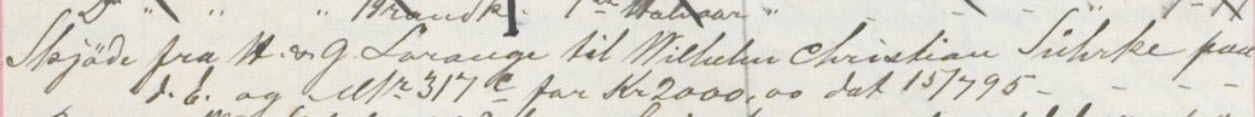 " " " Brandk. 1ste Halvaar "
Skjöde fra H. & G. Lorange til Wilhelm Christian Sührke paa
d. E. og Mtr 317 c for Kr 2000,00 dat 15/7 95 - - - -